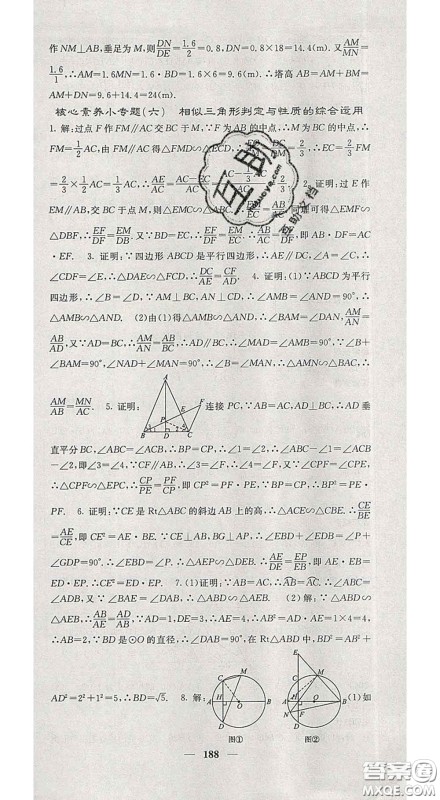 作NM⊥AB,垂足为M,则DN/DE=1.6/2=0.8,DN=0.8×18=14.4(m). 又AM/MN=
1.6/1∴AM=1.6MN=1.6·BD=1.6×6=9.6(m). ∴塔高AB=AM+BM=
AM+DN=9.6+14.4=24(m).
核心素养小专题(六) 相似三角形判定与性质的综合运用
1. 解:过点F作FM∥AC交BC于M,∵F为AB的中点,∴M为BC的中点,∴
FM=1/2AC,由FM∥AC得△FMD∽△ECD,
2. 证明:过E作
EM∥AB,交BC于点M,则△EMC∽△ABC, 同理可得△EMF∽
△DBF,∴EF/DF=EM/DB. 又∵BD=AE,∴EF/DF=EM/AE=AB/AC,即AB·DF=AC·
EF. 3. 证明:∵四边形ABCD是平行四边形,∴AE∥DC,∠A=∠C,∴
∠CDF=∠E,∴△DAE∽△FCD,∴DC/AE=CF/AD. 4. 证明:(1)∵▱ABCD为平行
四边形,∴∠B=∠D. ∵AM⊥BC,AN⊥CD,∴∠AMB=∠AND=90°,∴
△AMB∽△AND. (2)由(1)得△AMB∽△AND,∴AM/AN=AB/AD,∠BAM=∠DAN.
又AD=BC,∴AM/AN=AB/BC. ∵AM⊥BC,AD∥BC,∴∠AMB=∠MAD=90°. ∵∠B+
∠BAM=90°,∠NAD+∠MAN=90°,∴∠B=∠MAN,∴△AMN∽△BAC,∴
AM/AB=MN/AC. 5. 证明: 连接PC,∵AB=AC,AD⊥BC,∴AD垂
直平分BC,∠ABC=∠ACB,∴BP=CP,∴∠1=∠2,∴∠ABC-∠1=∠ACB
-∠2,即∠3=∠4. ∵CF∥AB,∴∠3=∠F,∴∠4=∠F. 又∵∠CPF=∠CPE,
∴△CPF∽△EPC,∴CP/PE=PF/CP,即CP²=PF·PE. ∵BP=CP,∴BP²=PE·
PF. 6. 证明:∵CE是Rt△ABC的斜边AB上的高,∴△ACE∽△CBE,∴CE/BE
=AE/CE,即CE²=AE·BE. ∵CE⊥AB,BG⊥AP,∴∠EBD+∠EDB=∠P+
∠GDP=90°. ∴∠EBD=∠P. ∴△AEP∽△DEB. ∴AE/DE=EP/EB,即AE·EB=
ED·EP. ∴CE²=ED·EP. 7. (1)证明:∵AB=AC,∴AB=AC. ∴∠ABC=
∠ADB. 又∠BAE=∠DAB,∴△ABE∽△ADB. (2)解:∵△ABE∽△ADB,
∴AB/AD=AE/AB,∵AD=1,DE=3,∴AE=4,∴AB²=AD·AE=1×4=4,
∴AB=2,∵BD是⊙O的直径,∴∠DAB=90°,在Rt△ABD中,BD²=AB²+
AD²=2²+1²=5,∴BD=√5. 8. 解: (1)如
图① 图②
188